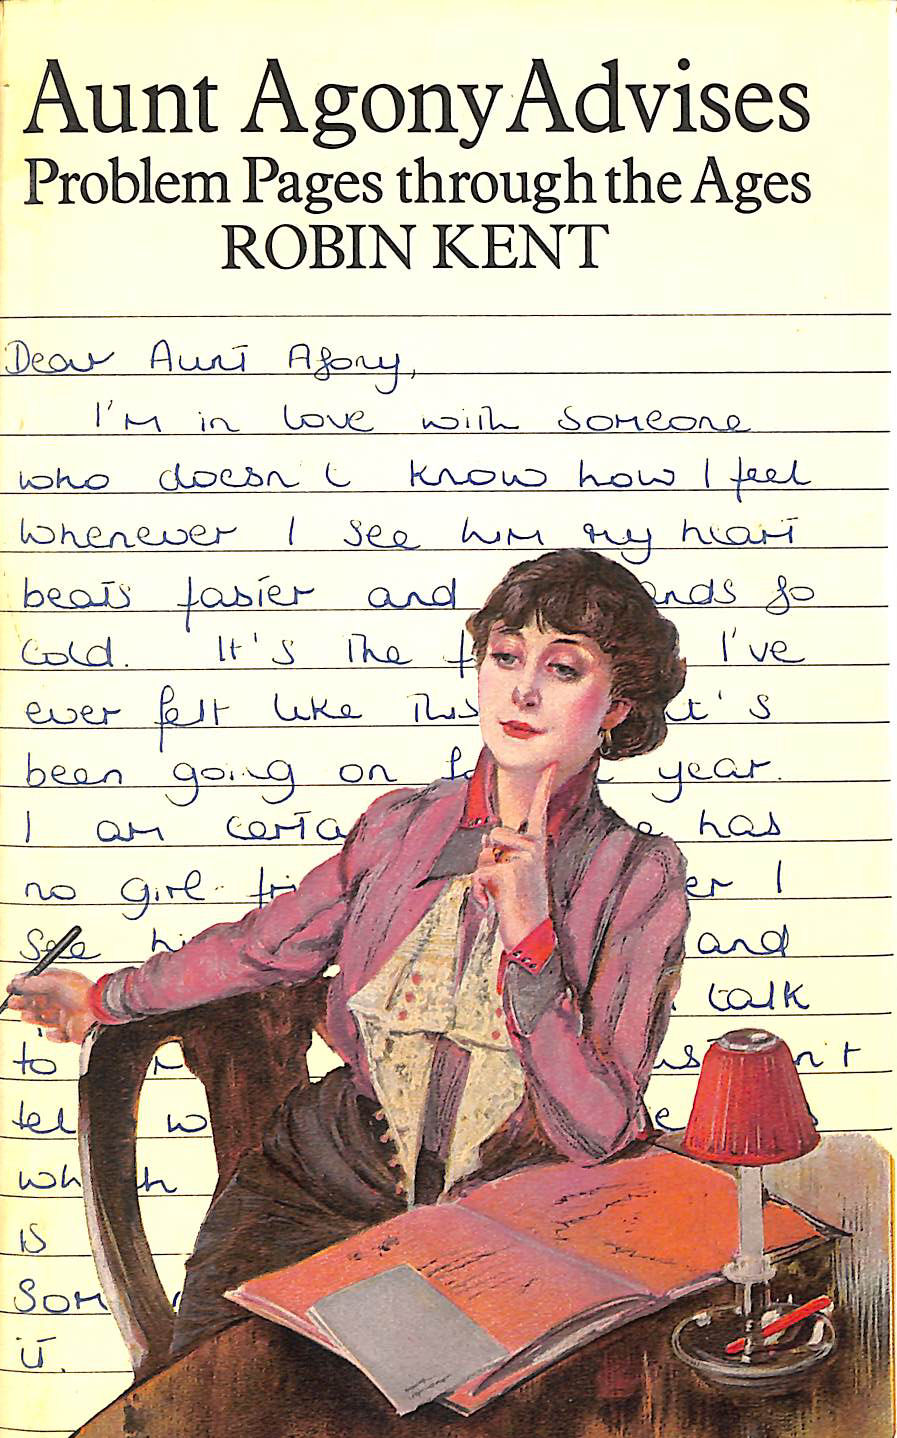 Aunt Agony Advises
Problem Pages through the Ages
ROBIN KENT
Dear Aunt Agony,
I'm in love with someone
who doesn't know how I feel
Whenever I see him my heart
beats faster and ands go
cold. It's the f I've
ever felt like this it's
been going on fo year.
I am certa e has
no girl fri er I
see hi and
talk
to n't
tel w e
wh h
is
Som
it.